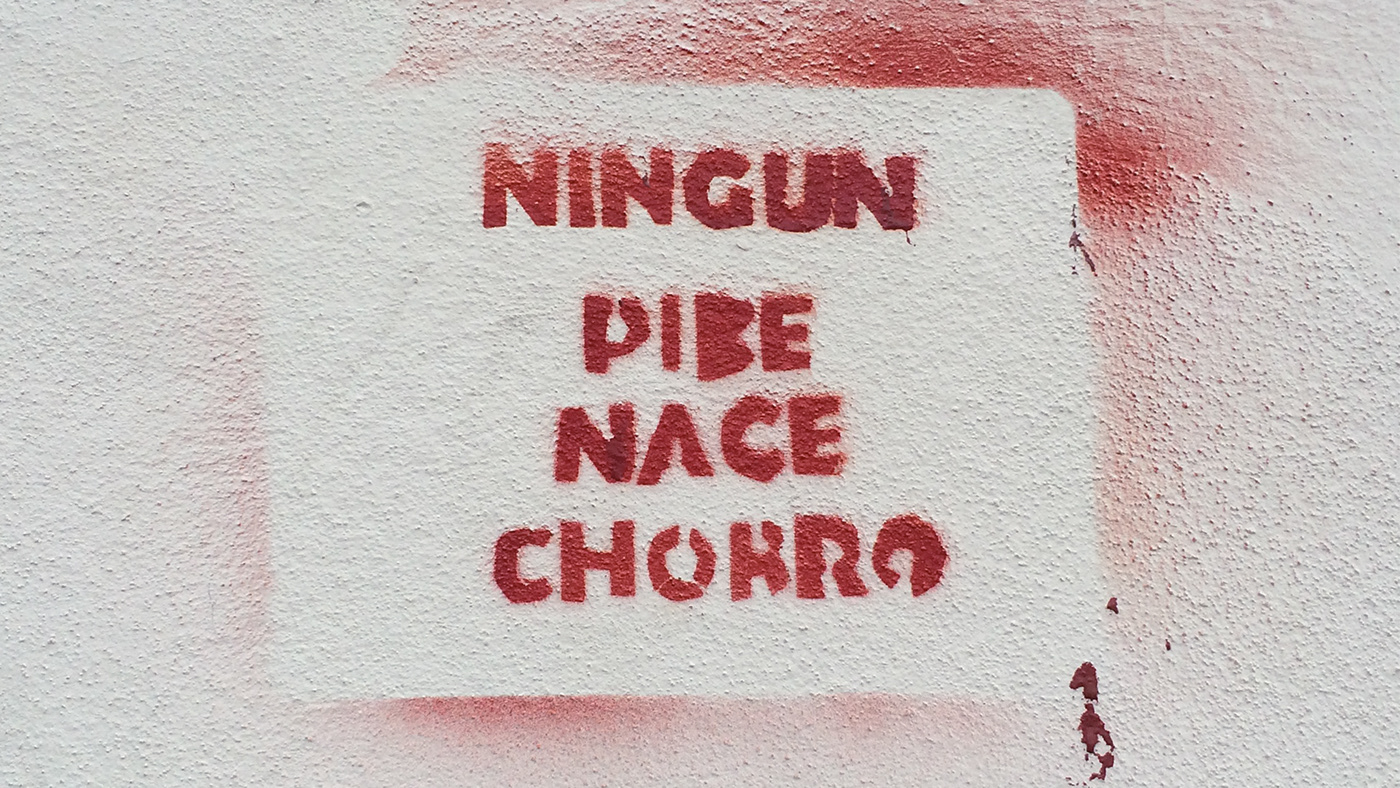 NINGUN
PIBE
NACE
CHORRO